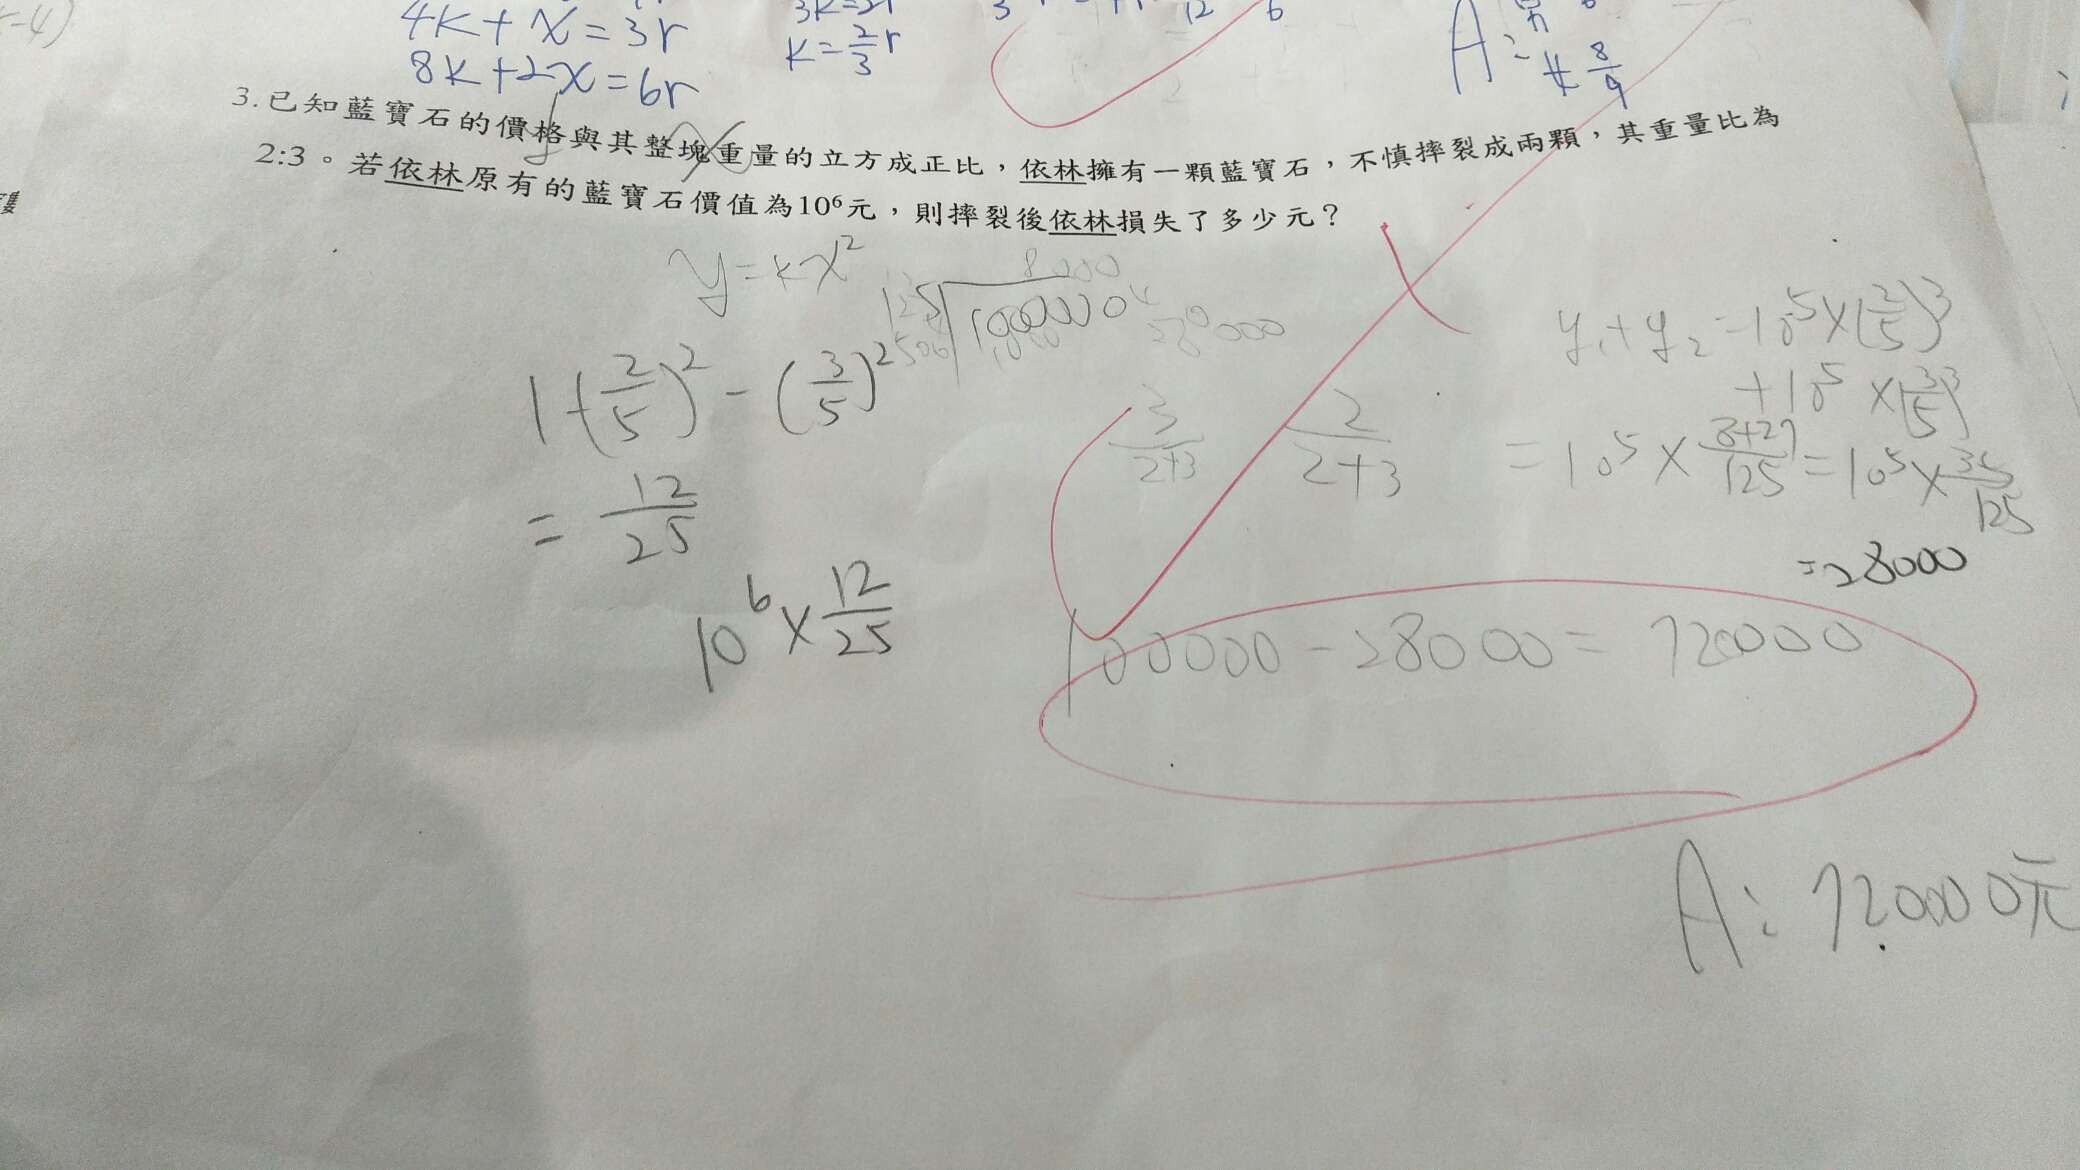 4k+x=3r
8k+2x=6r
k=2/3 r
A: 4 8/9
3.已知藍寶石的價格與其整塊重量的立方成正比，依林擁有一顆藍寶石，不慎摔裂成兩顆，其重量比為
2:3。若依林原有的藍寶石價值為10⁶元，則摔裂後依林損失了多少元？
y x
y=kx²
8000
125
1-(2/5)²-(3/5)²
=12/25
10⁶×12/25
3/(2+3) 2/(2+3)
y₁+y₂=10⁵×(2/5)³
+10⁵×(3/5)³
=10⁵×(8+27)/125=10⁵×35/125
=28000
100000-28000=72000
A: 72000元